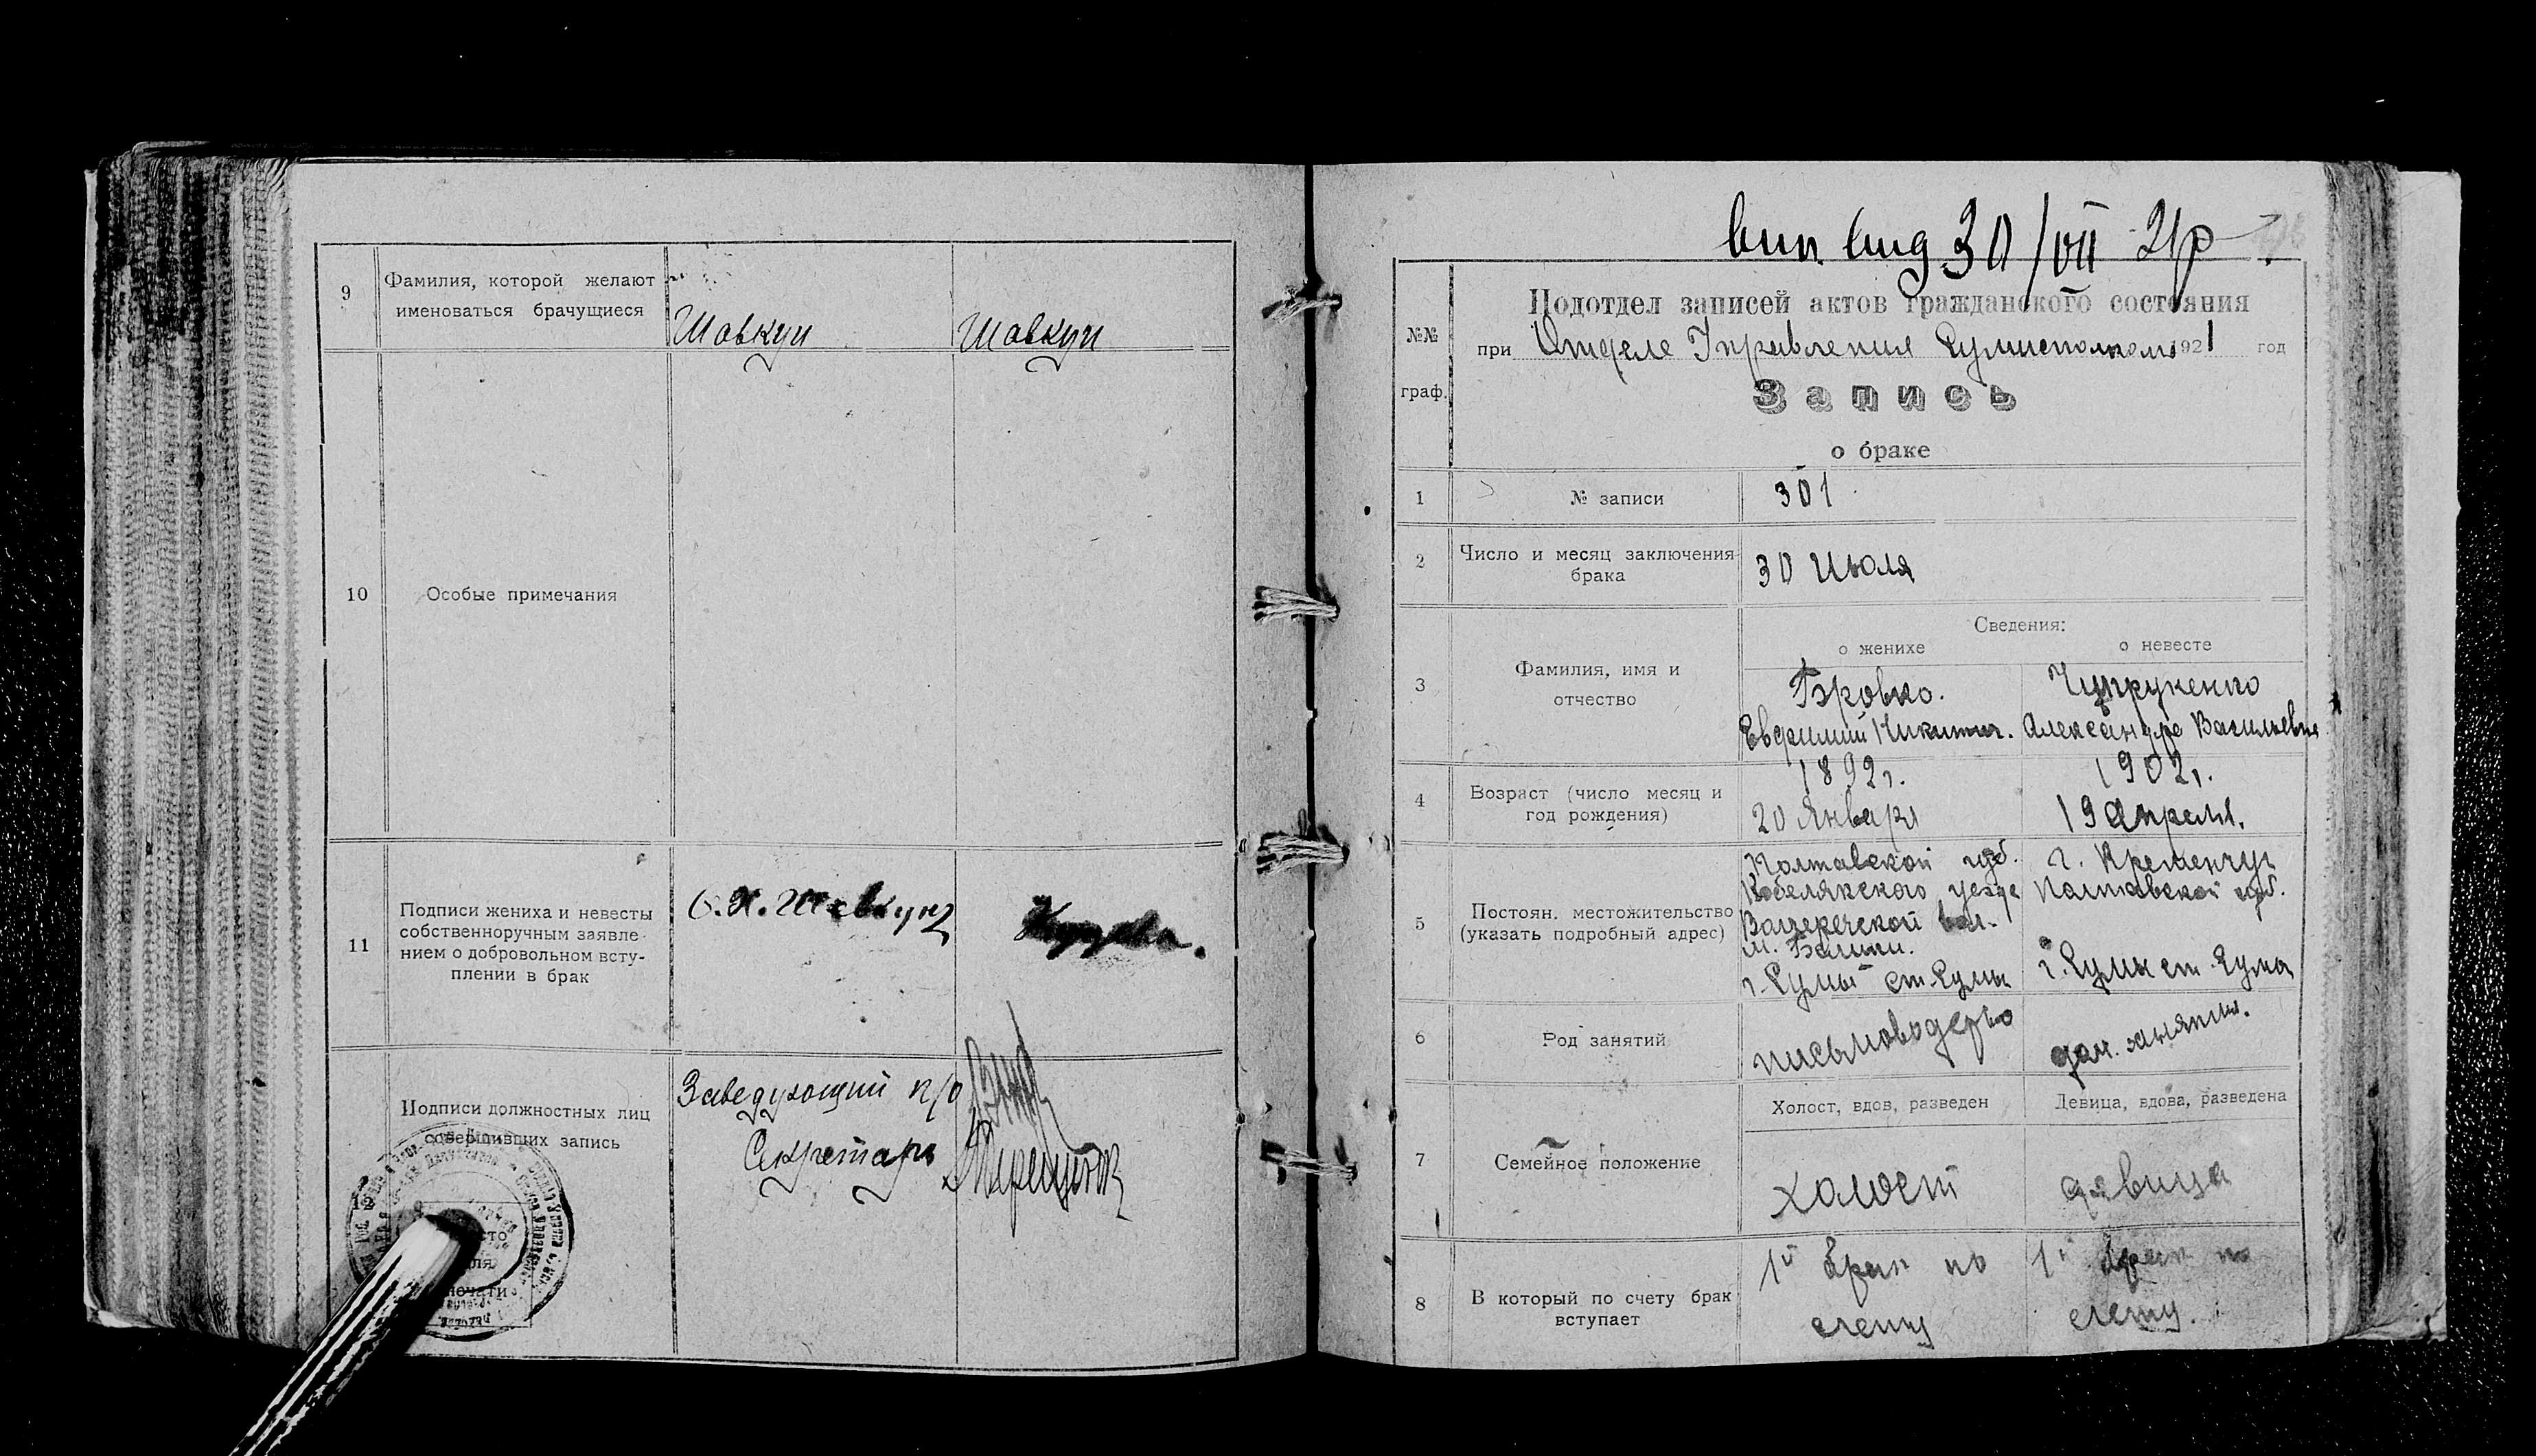 9
Фамилия, которой желают
именоваться брачущиеся
Шавкун
Шавкун
10
Особые примечания
11
Подписи жениха и невесты
собственноручным заявле-
нием о добровольном всту-
плении в брак
Заведующий п/о
Секретарь
Подписи должностных лиц
совершивших запись
12
печати
вип. вид 30/VII 21р
Подотдел записей актов гражданского состояния
№№
граф.
при Отделе Управления Сумисполкома 1921 год
Запись
о браке
1
№ записи
301
2
Число и месяц заключения
брака
30 Июля
Сведения:
о женихе
о невесте
3
Фамилия, имя и
отчество
Бровко.
Евфимий Никитич.
Александра Васильевна
4
Возраст (число месяц и
год рождения)
1892 г.
20 Января
1902 г.
19 Апреля.
5
Постоян. местожительство
(указать подробный адрес)
Полтавской губ.
Кобелякского уезда
вол.
м. Белики.
г. Сумы ст. Сумы
г. Кременчуг
Полтавской губ.
г. Сумы ст. Сумы
6
Род занятий
письмоводство
дом. занятия.
Холост, вдов, разведен
Девица, вдова, разведена
7
Семейное положение
холост
дявица
8
В который по счету брак
вступает
1й брак по
счету
1й брак по
счету.